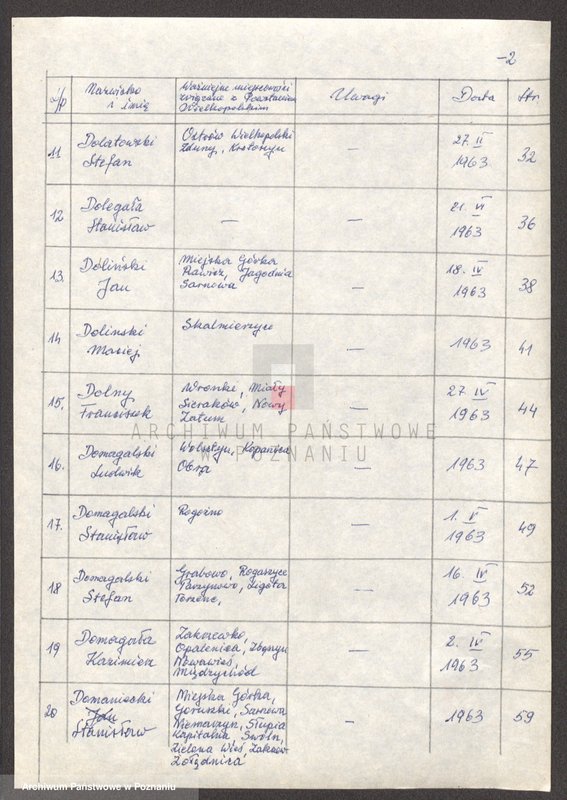 -2
L/p
Nazwisko
i imię
Ważniejsze miejscowości
związane z Powstaniem
Wielkopolskim
Uwagi
Data
Str
11
Dolatowski
Stefan
Ostrów Wielkopolski
Zduny, Krotoszyn
—
27. II
1963
32
12
Dolegała
Stanisław
—
—
21. VI
1963
36
13.
Doliński
Jan
Miejska Górka
Rawicz, Jagodnia
Sarnowa
—
18. IV
1963
38
14
Dolinski
Maciej
Skalmierzyce
—
1963
41
15.
Dolny
Franciszek
Wronki, Miały
Sieraków, Nowy
Zatum
—
27. IV
1963
44
ARCHIWUM PAŃSTWOWE
W POZNANIU
16.
Domagalski
Ludwik
Wolsztyn, Kopanica
Obra
—
1963
47
17.
Domagalski
Stanisław
Rogoźno
—
1. V
1963
49
18
Domagalski
Stefan
Grabowo, Rogaszyce
Parzynowo, Ligota
—
16. IV
1963
52
19
Domagała
Kazimierz
Zakrzewko,
Opalenica, Zbąszyń
Nowawieś,
Międzychód
—
2. IV
1963
55
20
Domaniecki
Stanisław
Miejska Górka,
Gołuszki, Sarnowa
Niemarzyn, Słupia
Kapitalna
Zielona Wieś,
Żołędnica
—
1963
59
Archiwum Państwowe w Poznaniu